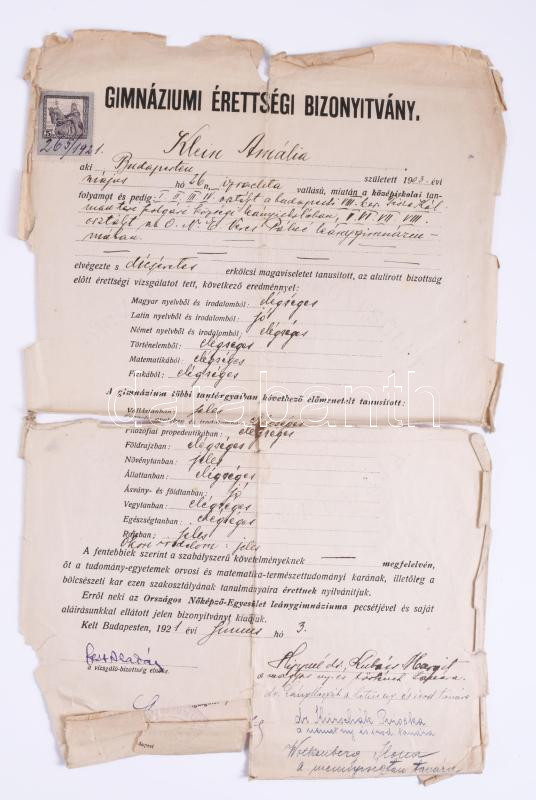 GIMNÁZIUMI ÉRETTSÉGI BIZONYITVÁNY.
263/1921.
Klein Amália
aki Budapesten született 1903 évi
május hó 26n, izraelita vallású, miután a középiskolai tan-
folyamot és pedig: I II III IV osztályt a budapesti VIII. ker.
polgári községi leányiskolában, V VI VII VIII.
osztályt az O. N. E. Veres Pálné leánygimnáziu-
mában.
elvégezte s dicséretes erkölcsi magaviseletet tanusított, az alulírott bizottság
előtt érettségi vizsgálatot tett, következő eredménnyel:
Magyar nyelvből és irodalomból: elégséges
Latin nyelvből és irodalomból: jó
Német nyelvből és irodalomból: elégséges
Történelemből: elégséges
Matematikából: elégséges
Fizikából: elégséges
A gimnázium többi tantárgyaiban következő előmenetelt tanusított:
Vallástanban: jeles
irodalomban: elégséges
Filozófiai propedeutikában: elégséges
Földrajzban: elégséges
Növénytanban: jeles
Állattanban: elégséges
Ásvány- és földtanban: jó
Vegytanban: elégséges
Egészségtanban: elégséges
Rajzban: jeles
irodalom: jeles
A fentebbiek szerint a szabályszerű követelményeknek megfelelvén,
őt a tudomány-egyetemek orvosi és matematika-természettudományi karának, illetőleg a
bölcsészeti kar ezen szakosztályának tanulmányaira érettnek nyilvánítjuk.
Erről neki az Országos Nőképző-Egyesület leánygimnáziuma pecsétjével és saját
aláírásunkkal ellátott jelen bizonyítványt kiadjuk.
Kelt Budapesten, 1921 évi Junius hó 3.
a vizsgáló-bizottság elnöke.
dr. Margit
a magyar nyelv tanára.
dr. a latin nyelv és irod. tanára
dr. Hirschák Piroska
a német ny. és irod. tanára
Ilona
a mennyiségtan tanára
darabanth